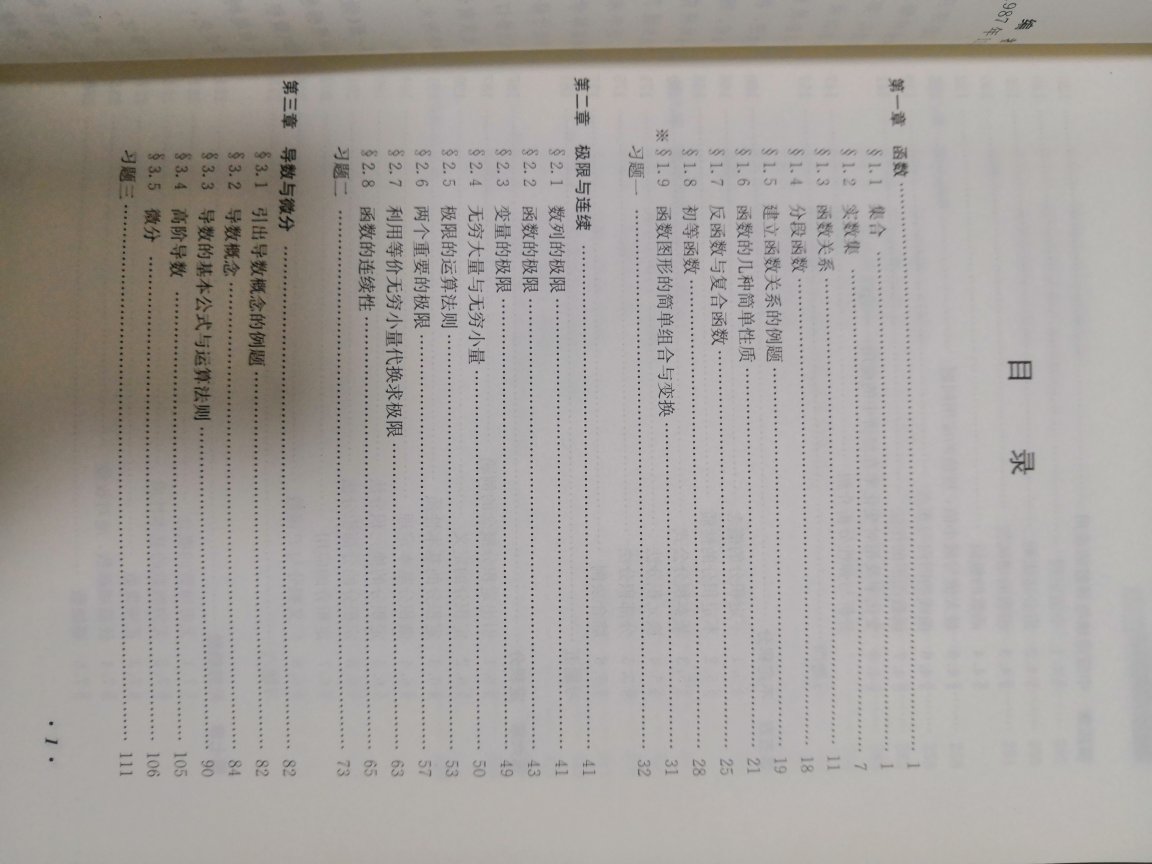 目 录
第一章 函数 …… 1
§1.1 集合 …… 1
§1.2 实数集 …… 7
§1.3 函数关系 …… 11
§1.4 分段函数 …… 18
§1.5 建立函数关系的例题 …… 19
§1.6 函数的几种简单性质 …… 21
§1.7 反函数与复合函数 …… 25
§1.8 初等函数 …… 28
※§1.9 函数图形的简单组合与变换 …… 31
习题一 …… 32
第二章 极限与连续 …… 41
§2.1 数列的极限 …… 41
§2.2 函数的极限 …… 43
§2.3 变量的极限 …… 49
§2.4 无穷大量与无穷小量 …… 50
§2.5 极限的运算法则 …… 53
§2.6 两个重要的极限 …… 57
§2.7 利用等价无穷小量代换求极限 …… 63
§2.8 函数的连续性 …… 65
习题二 …… 73
第三章 导数与微分 …… 82
§3.1 引出导数概念的例题 …… 82
§3.2 导数概念 …… 84
§3.3 导数的基本公式与运算法则 …… 90
§3.4 高阶导数 …… 105
§3.5 微分 …… 106
习题三 …… 111
· 1 ·
编
987 年